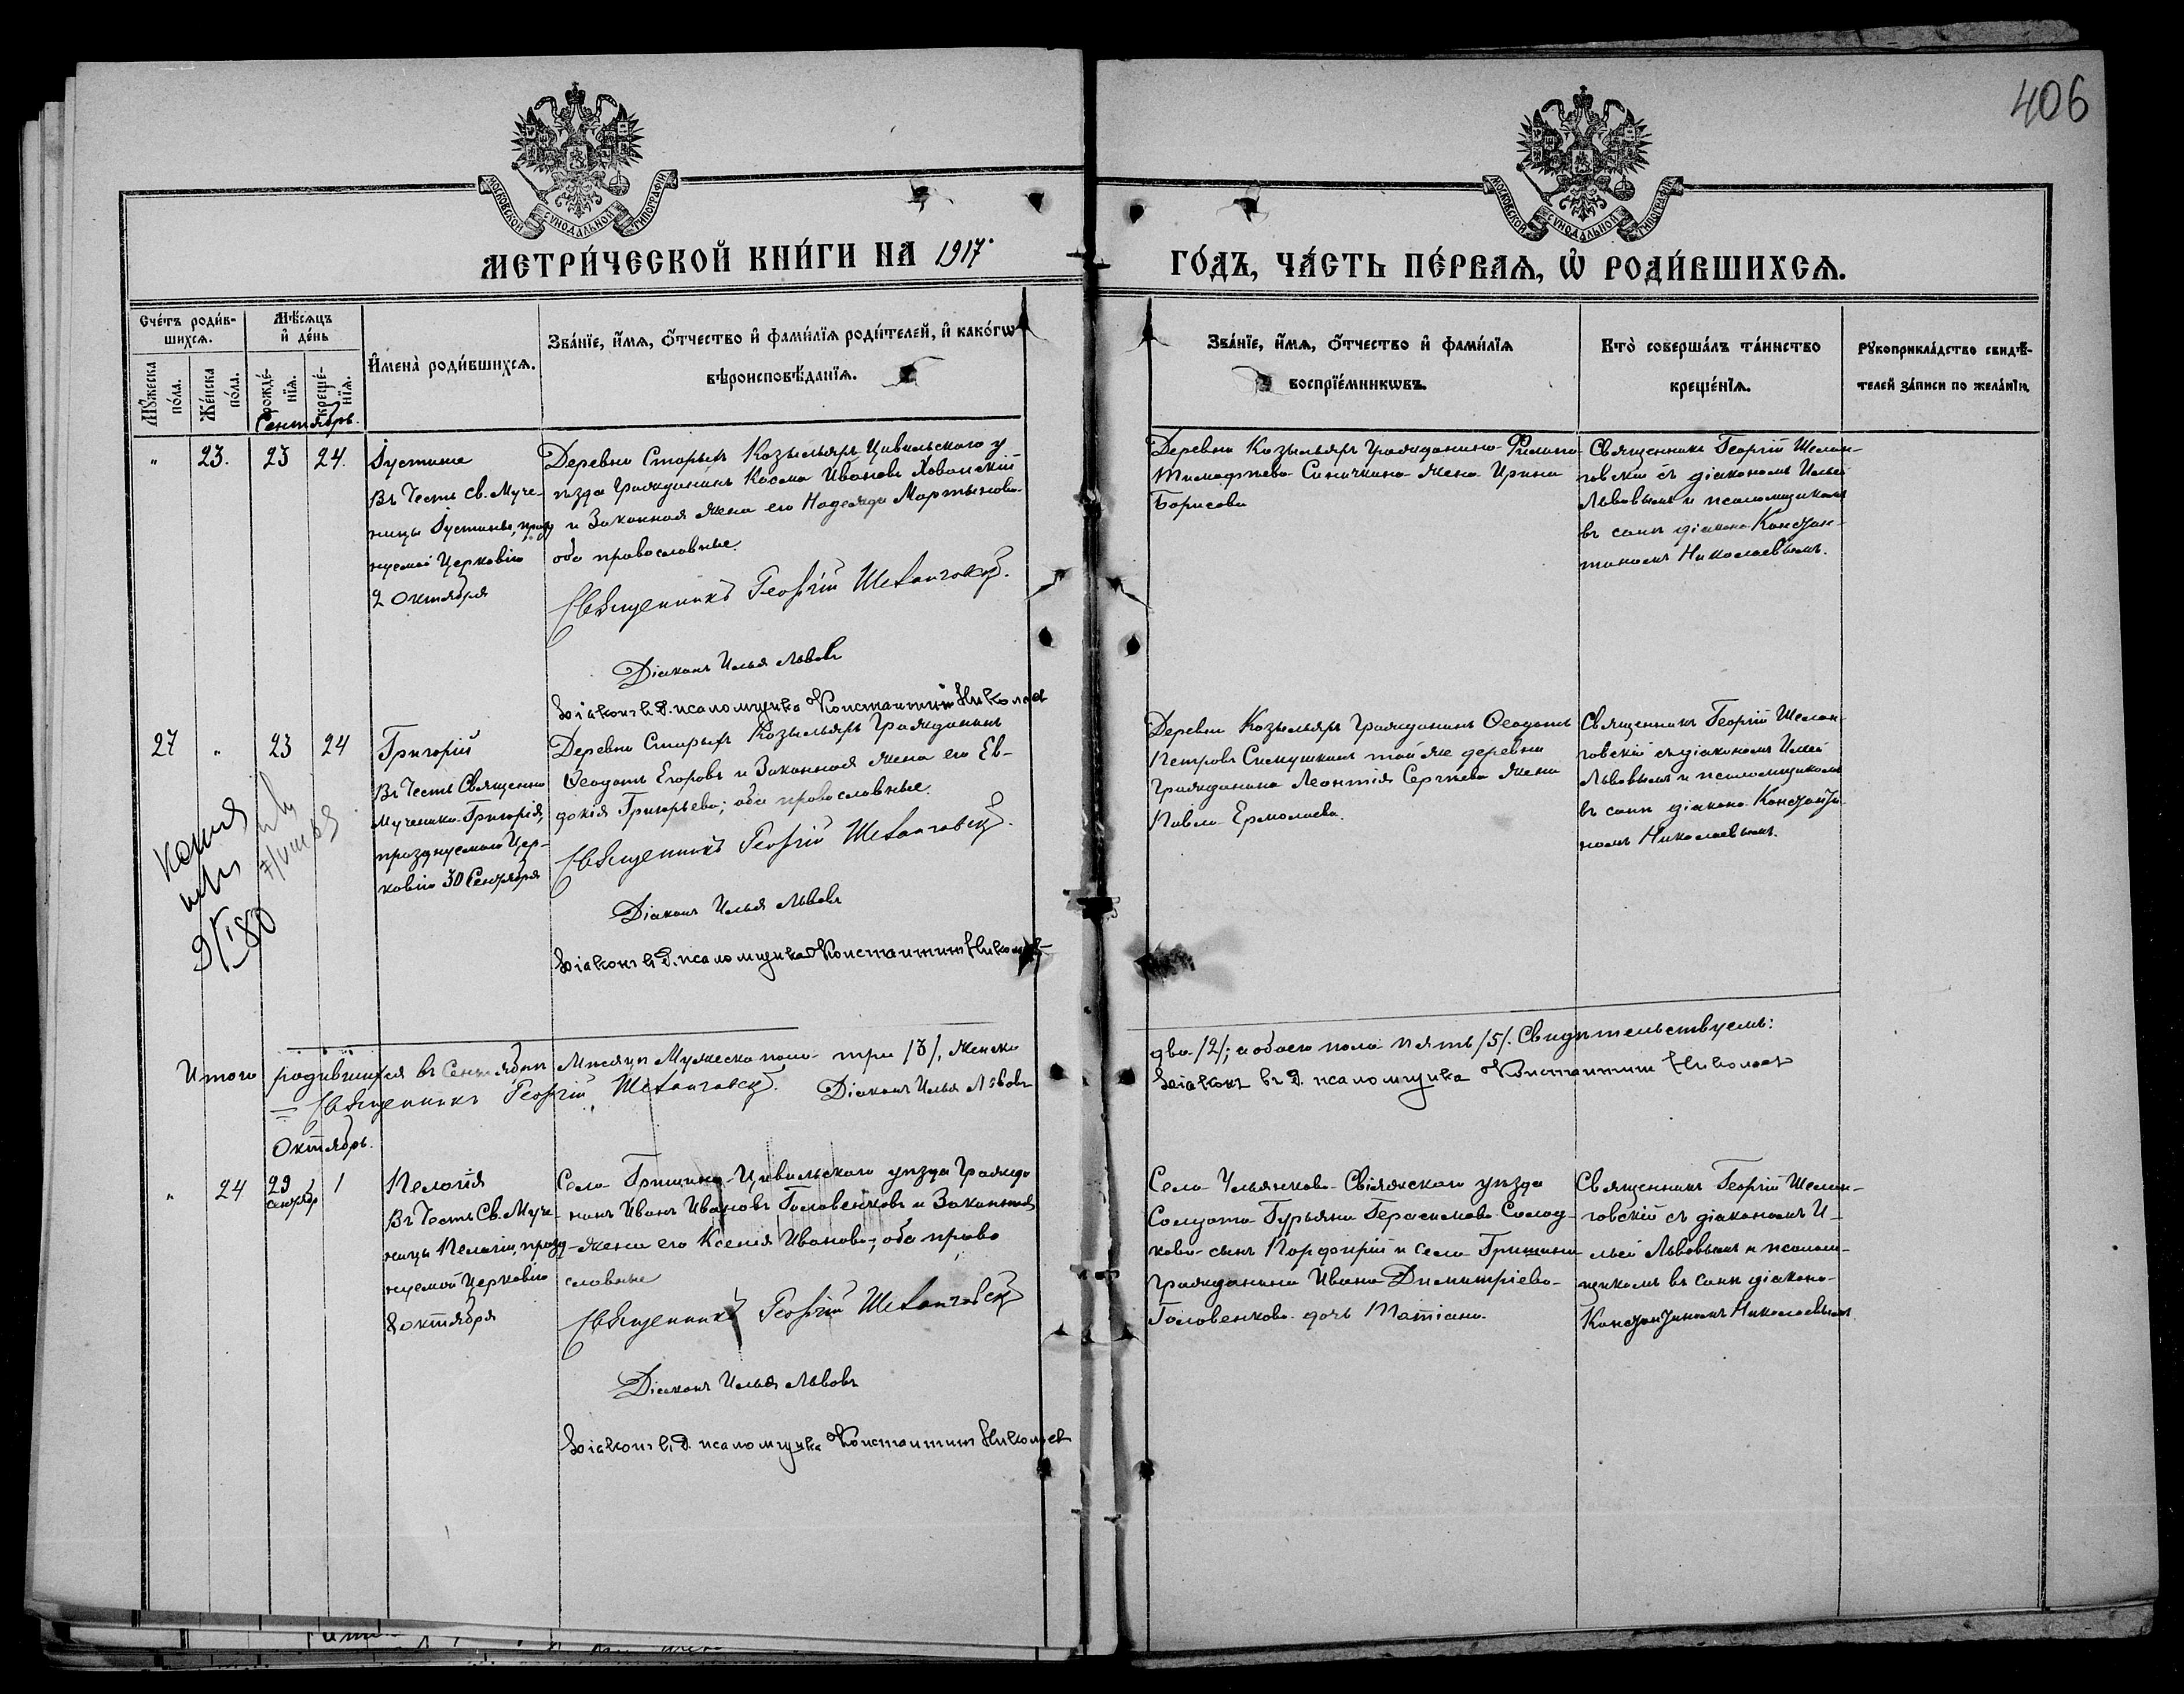 406
МОСКОВСКОЙ СУНОДАЛЬНОЙ ТИПОГРАФІИ
МОСКОВСКОЙ СУНОДАЛЬНОЙ ТИПОГРАФІИ
МЕТРИ́ЧЕСКОЙ КНИ́ГИ НА 1917
ГО́ДЪ, ЧА́СТЬ ПЕ́РВАЯ, Ѡ҆ РОДИ́ВШИХСЯ.
Сче́тъ роди́в-
шихся.
Мѣ́сяцъ
и҆ де́нь
Му́жеска
по́ла.
Же́нска
по́ла.
рожде́-
нїя.
креще́-
нїя.
И҆мена̀ роди́вшихся.
Зва́нїе, и҆́мя, ѻ҆́тчество и҆ фами́лїя роди́телей, и҆ како́гѡ
вѣроисповѣ́данїя.
Зва́нїе, и҆́мя, ѻ҆́тчество и҆ фами́лїя
воспрїе́мникѡвъ.
Кто̀ соверша́лъ та́инство
креще́нїя.
Рꙋкоприкла́дство свидѣ́-
телей за́писи по жела́нїю.
Сентябрь.
" 23. 23 24.
Іустина
Въ Честь Св. Муче-
ницы Іустины, празд
нуемой Церковію
2 октября
Деревни Старыхъ Козыльяръ Цивильскаго у
ѣзда Гражданинъ Косма Ивановъ Хованскій
и Законная жена его Надежда Мартынова
оба православные.
Священникъ Георгій Шеланговскій.
Діаконъ Илья Львовъ
Діаконъ в Д. псаломщика Константинъ Николаев
Деревни Козыльяръ Гражданина Филипа
Тимофѣева Синичкина жена Ирина
Борисова
Священникъ Георгій Шелан-
говскій съ діакономъ Ильей
Львовымъ и псаломщикомъ
въ санѣ діакона Констан-
тиномъ Николаевымъ.
27 " 23 24
Григорій
Въ Честь Священно
Мученика Григорія,
празднуемаго Цер-
ковію 30 Сентября
Деревни Старыхъ Козыльяръ Гражданинъ
Ѳеодотъ Егоровъ и Законная жена его Ев-
докія Григорьева; оба православные.
Священникъ Георгій Шеланговскій.
Діаконъ Илья Львовъ
Діаконъ в Д. псаломщика Константинъ Николаев
Деревни Козыльяръ Гражданинъ Ѳеодотъ
Петровъ Симушкинъ той же деревни
Гражданина Леонтія Сергѣева жена
Павла Ермолаева.
Священникъ Георгій Шелан-
говскій съ діакономъ Ильей
Львовымъ и псаломщикомъ
въ санѣ діакона Константи-
номъ Николаевымъ.
копия
9/I 80
Итого родившихся въ Сентябрѣ Мѣсяцѣ Мужеска пола три /3/, женска
два /2/; а обоего пола пять /5/. Свидѣтельствуемъ:
Священникъ Георгій Шеланговскій. Діаконъ Илья Львовъ
Діаконъ въ Д. псаломщика Константинъ Николаев
Октябрь.
" 24 29 1
Сентябр
Пелагія
Въ Честь Св. Муче-
ницы Пелагіи, празд-
нуемой Церковію
8 октября
Села Гришина Цивильскаго уѣзда Гражда
нинъ Иванъ Ивановъ Головенковъ и Законная
жена его Ксенія Иванова; оба право
славные
Священникъ Георгій Шеланговскій
Діаконъ Илья Львовъ
Діаконъ в Д. псаломщика Константинъ Николаев
Села Ульянкова Свіяжскаго уѣзда
Солдата Гурьяна Герасимова Солод-
кова сынъ Порфирій и села Гришина
Гражданина Ивана Димитріева
Головенкова дочь Татіана.
Священникъ Георгій Шелан-
говскій съ діакономъ И-
льей Львовымъ и псалом-
щикомъ въ санѣ діакона
Константиномъ Николаевымъ